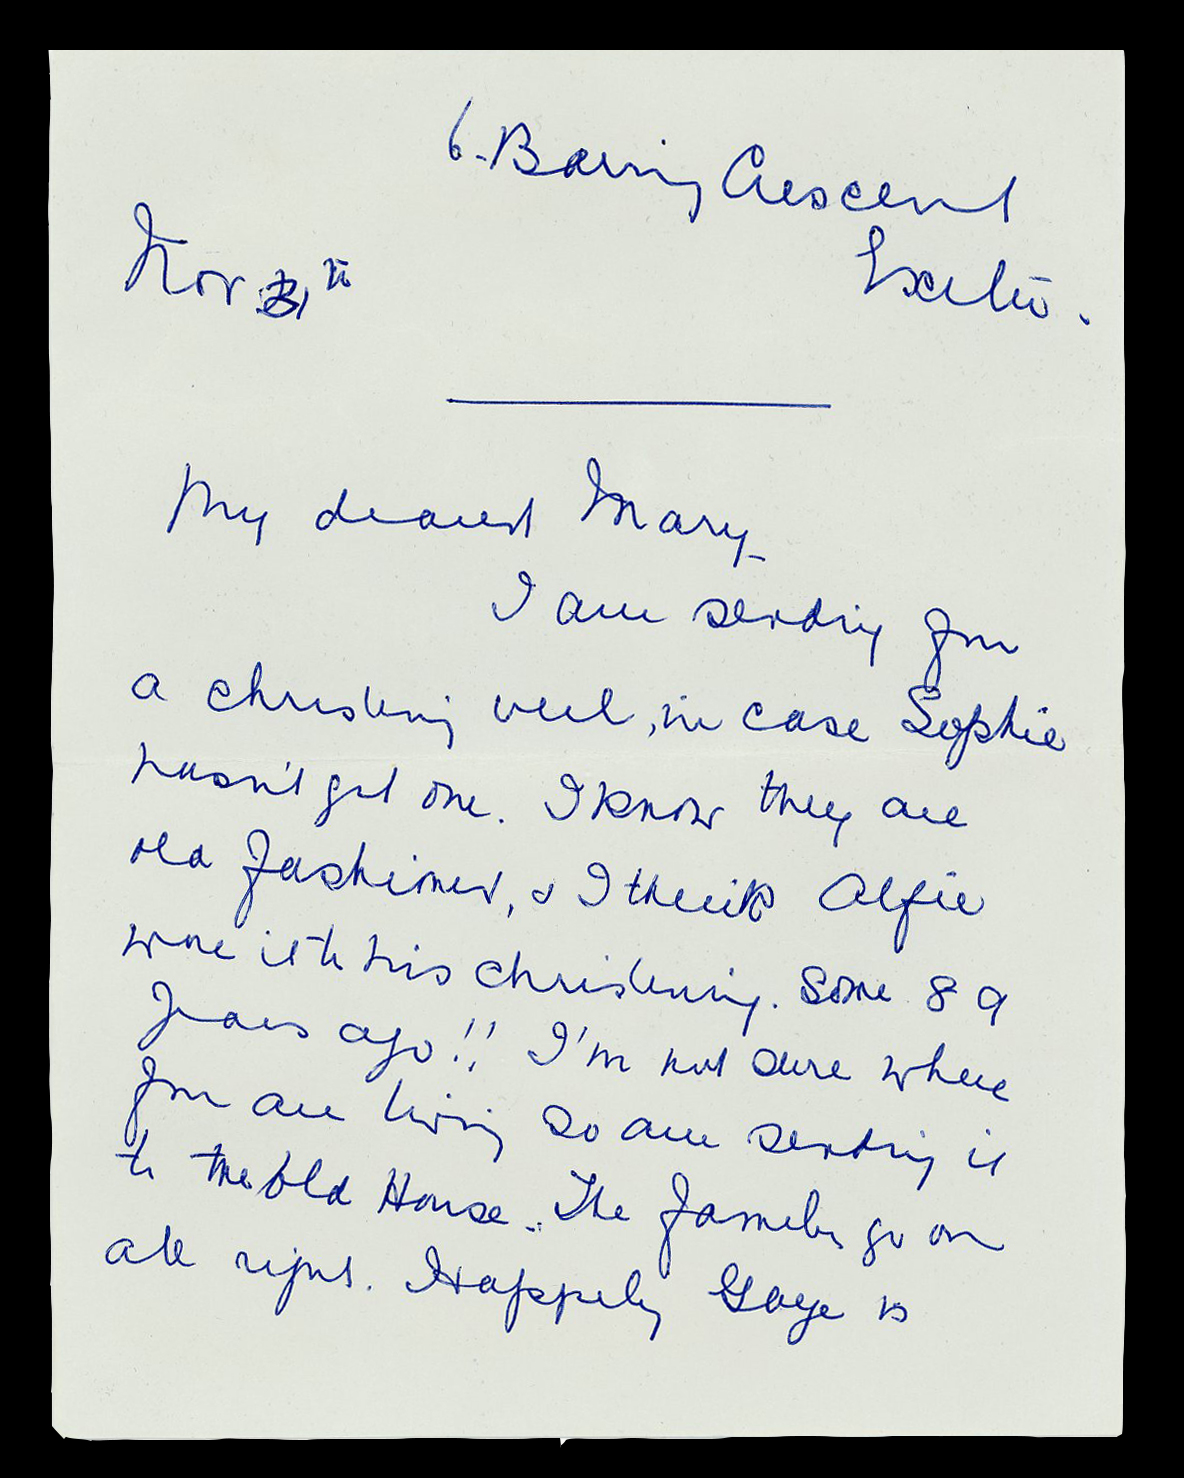 6. Baring Crescent
Exeter.
Nov 21th
My dearest Mary
I am sending you
a christening veil, in case Sophie
hasn't got one. I know they are
old fashioned, & I think Alfie
wore it to his christening. Some 89
years ago!! I'm not sure where
you are living so am sending it
to the Old House. The family go on
all right. Happily Gaye is